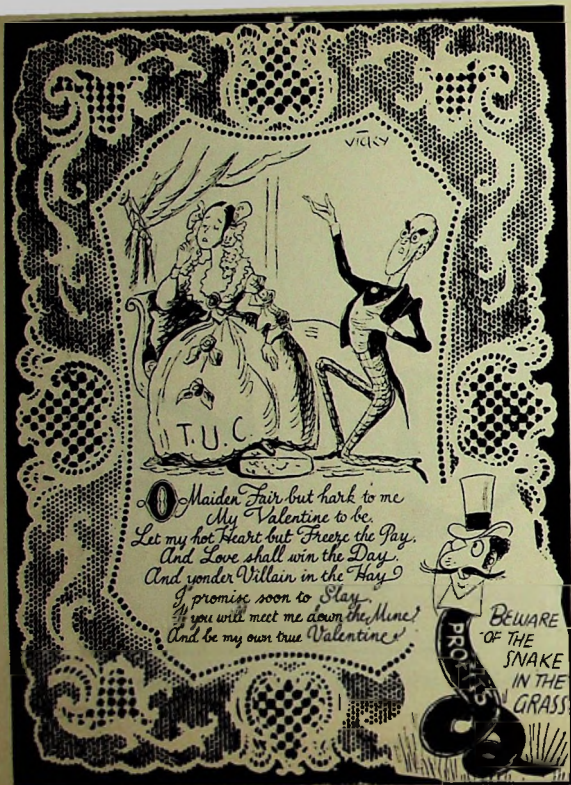 VICKY
T.U.C.
O Maiden Fair but hark to me
My Valentine to be.
Let my hot Heart but Freeze the Pay,
And Love shall win the Day
And yonder Villain in the Hay
I promise soon to Slay.
If you will meet me down the Mine?
And be my own true Valentine!
PROFITS
BEWARE
OF THE
SNAKE
IN THE
GRASS